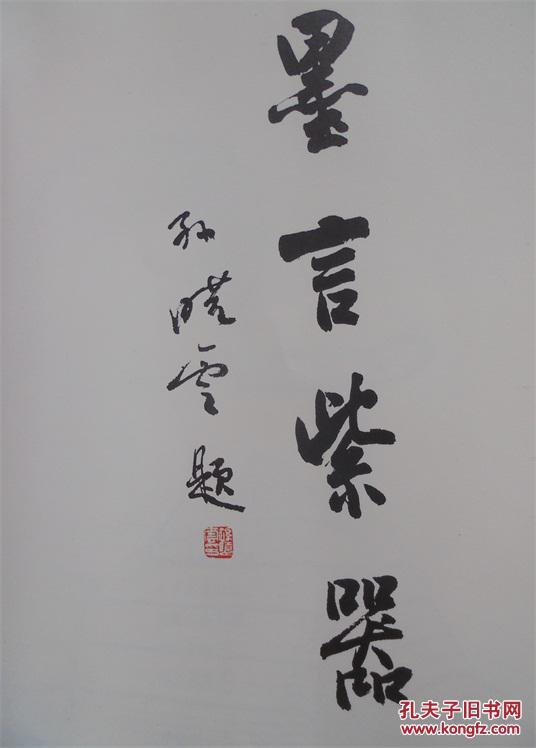 墨言紫器
孙晓云题
孔夫子旧书网
www.kongfz.com